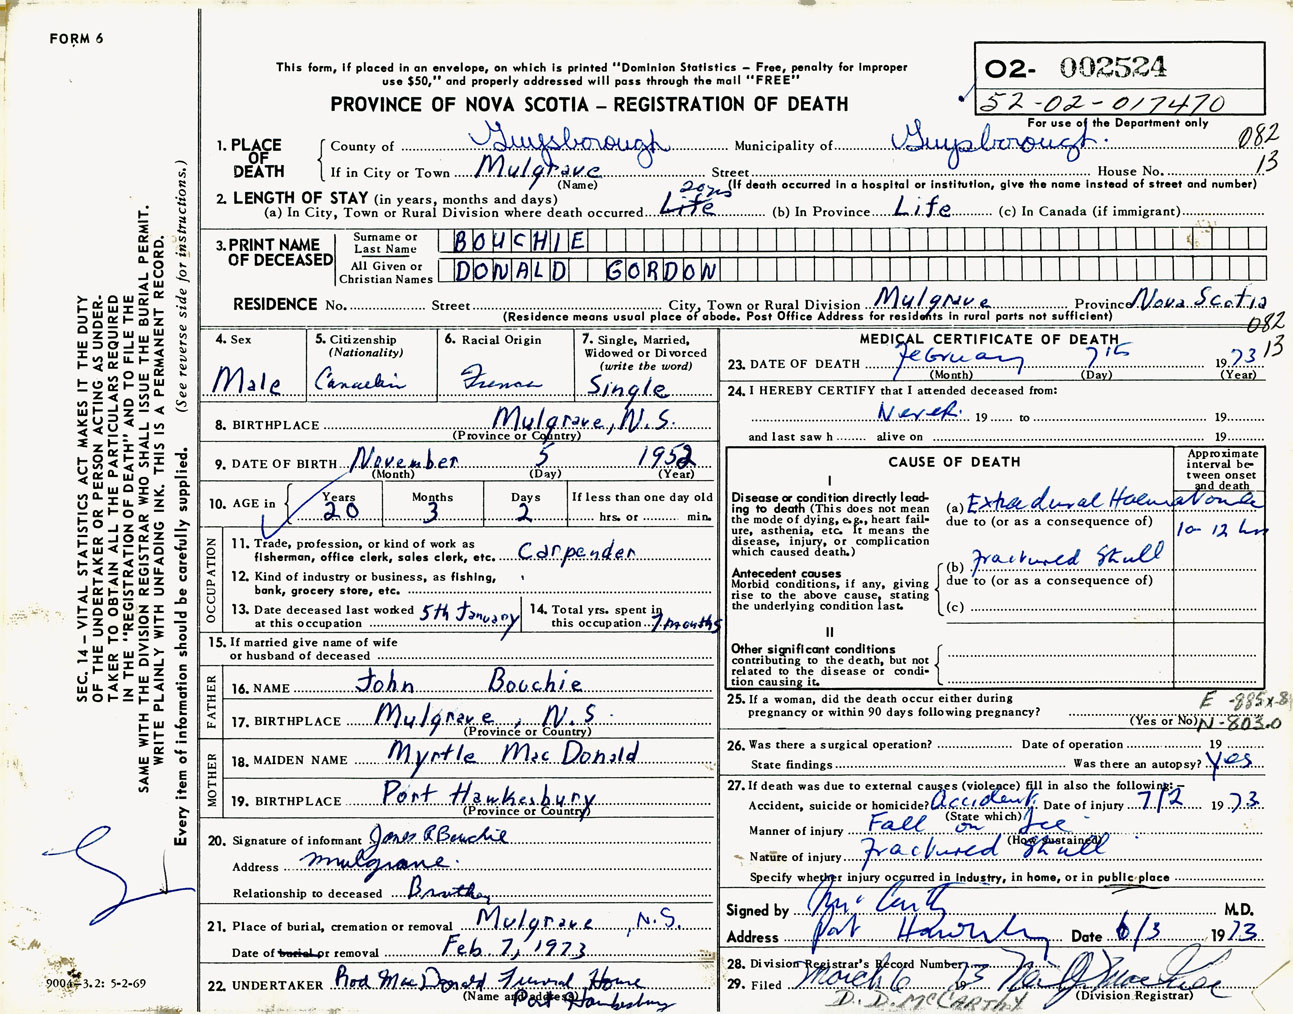 FORM 6
This form, if placed in an envelope, on which is printed "Dominion Statistics – Free, penalty for improper
use $50," and properly addressed will pass through the mail "FREE"
PROVINCE OF NOVA SCOTIA – REGISTRATION OF DEATH
02- 002524
52-02-017470
For use of the Department only
1. PLACE OF DEATH
County of Guysborough Municipality of Guysborough. 082
If in City or Town Mulgrave Street House No. 13
(Name) (If death occurred in a hospital or institution, give the name instead of street and number)
2. LENGTH OF STAY (in years, months and days) 20 yrs
(a) In City, Town or Rural Division where death occurred Life (b) In Province Life (c) In Canada (if immigrant)
3. PRINT NAME OF DECEASED
Surname or Last Name BOUCHIE
All Given or Christian Names DONALD GORDON
RESIDENCE No. Street City, Town or Rural Division Mulgrave Province Nova Scotia
(Residence means usual place of abode. Post Office Address for residents in rural parts not sufficient) 082
13
4. Sex Male
5. Citizenship (Nationality) Canadian
6. Racial Origin French
7. Single, Married, Widowed or Divorced (write the word) Single
8. BIRTHPLACE Mulgrave, N.S.
(Province or Country)
9. DATE OF BIRTH November 5 1952
(Month) (Day) (Year)
10. AGE in Years 20 Months 3 Days 2 If less than one day old
hrs. or min.
OCCUPATION
11. Trade, profession, or kind of work as
fisherman, office clerk, sales clerk, etc. Carpender
12. Kind of industry or business, as fishing,
bank, grocery store, etc.
13. Date deceased last worked at this occupation 5th January
14. Total yrs. spent in this occupation 7 months
15. If married give name of wife
or husband of deceased
FATHER
16. NAME John Bouchie
17. BIRTHPLACE Mulgrave, N.S.
(Province or Country)
MOTHER
18. MAIDEN NAME Myrtle MacDonald
19. BIRTHPLACE Port Hawkesbury
(Province or Country)
20. Signature of informant Bouchie
Address Mulgrave.
Relationship to deceased Brother
21. Place of burial, cremation or removal Mulgrave, N.S.
Date of burial or removal Feb. 7, 1973
22. UNDERTAKER Rod MacDonald Funeral Home
(Name and address) Port Hawkesbury
MEDICAL CERTIFICATE OF DEATH
23. DATE OF DEATH February 7th 1973
(Month) (Day) (Year)
24. I HEREBY CERTIFY that I attended deceased from:
Never. 19 to 19
and last saw h alive on 19
CAUSE OF DEATH
Approximate interval between onset and death
I
Disease or condition directly leading to death (This does not mean the mode of dying, e.g., heart failure, asthenia, etc. It means the disease, injury, or complication which caused death.)
(a) Extradural Haematoma
due to (or as a consequence of) 10-12 hrs
Antecedent causes
Morbid conditions, if any, giving rise to the above cause, stating the underlying condition last.
(b) Fractured Skull
due to (or as a consequence of)
(c)
II
Other significant conditions
contributing to the death, but not related to the disease or condition causing it.
25. If a woman, did the death occur either during
pregnancy or within 90 days following pregnancy?
(Yes or No) N-803.0
26. Was there a surgical operation? Date of operation 19
State findings Was there an autopsy? Yes
27. If death was due to external causes (violence) fill in also the following:
Accident, suicide or homicide? Accident. Date of injury 7/2 1973
(State which)
Manner of injury Fall on Ice
(How sustained)
Nature of injury Fractured Skull
Specify whether injury occurred in industry, in home, or in public place
Signed by McCarthy M.D.
Address Port Hawkesbury Date 6/3 1973
28. Division Registrar's Record Number
29. Filed March 6 1973
(Division Registrar)
D. D. McCARTHY
SEC. 14 – VITAL STATISTICS ACT MAKES IT THE DUTY
OF THE UNDERTAKER OR PERSON ACTING AS UNDER-
TAKER TO OBTAIN ALL THE PARTICULARS REQUIRED
IN THE "REGISTRATION OF DEATH" AND TO FILE THE
SAME WITH THE DIVISION REGISTRAR WHO SHALL ISSUE THE BURIAL PERMIT.
WRITE PLAINLY WITH UNFADING INK. THIS IS A PERMANENT RECORD.
Every item of information should be carefully supplied. (See reverse side for instructions.)
9004-3.2: 5-2-69